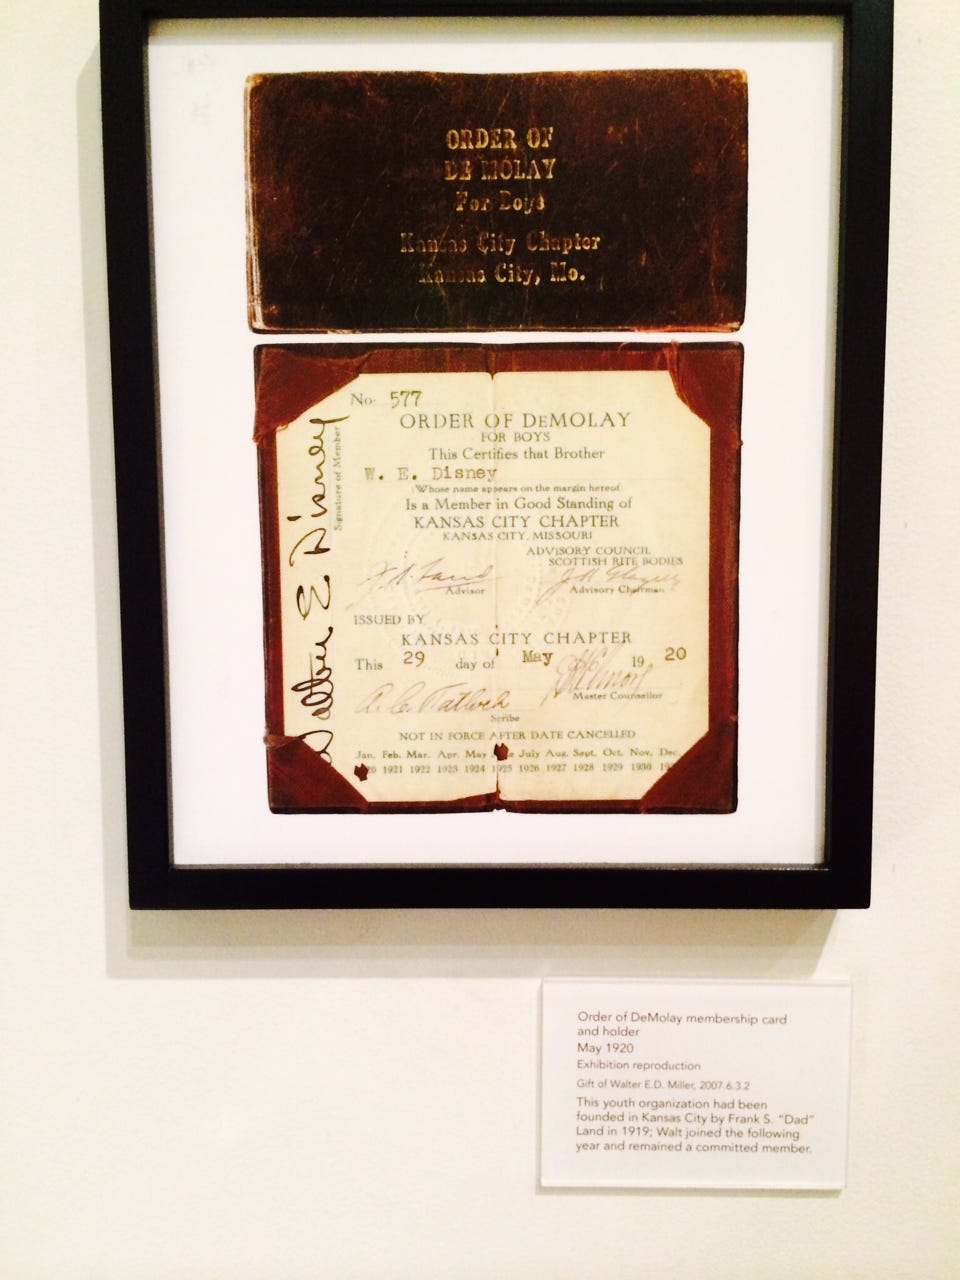 ORDER OF
DE MOLAY
For Boys
Kansas City Chapter
Kansas City, Mo.
No. 577
ORDER OF DeMOLAY
FOR BOYS
This Certifies that Brother
W. E. Disney
(Whose name appears on the margin hereof)
Is a Member in Good Standing of
KANSAS CITY CHAPTER
KANSAS CITY, MISSOURI
ADVISORY COUNCIL
SCOTTISH RITE BODIES
Advisor
Advisory Chairman
ISSUED BY
KANSAS CITY CHAPTER
This 29 day of May 19 20
Master Counsellor
Scribe
NOT IN FORCE AFTER DATE CANCELLED
Jan. Feb. Mar. Apr. May July Aug. Sept. Oct. Nov. Dec.
1921 1922 1923 1924 1925 1926 1927 1928 1929 1930
Walter E Disney
Signature of Member
Order of DeMolay membership card
and holder
May 1920
Exhibition reproduction
Gift of Walter E.D. Miller, 2007.6.3.2
This youth organization had been
founded in Kansas City by Frank S. “Dad”
Land in 1919; Walt joined the following
year and remained a committed member.